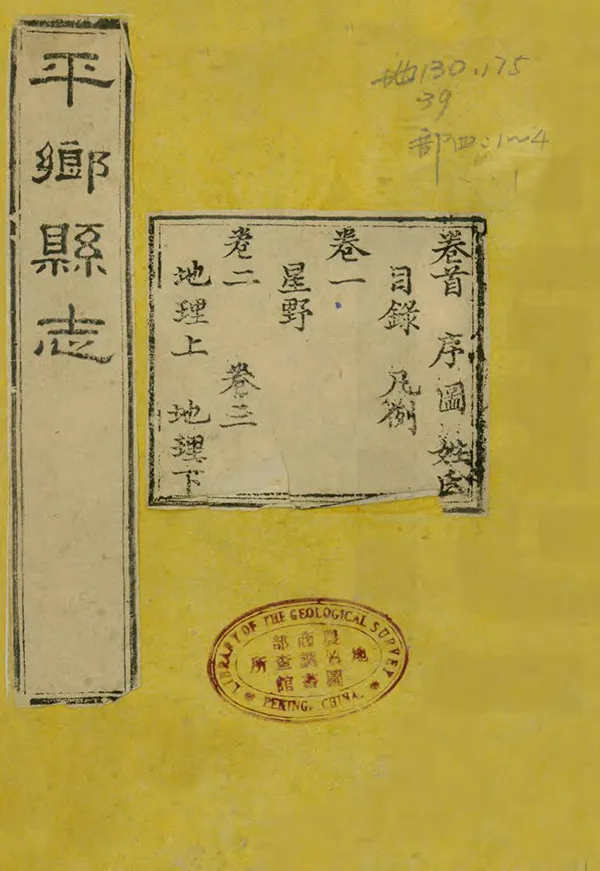 平鄉縣志
地130.175
39
部四:1~4
卷首 序 圖 姓氏
目錄 凡例
卷一
星野
卷二 卷三
地理上 地理下
LIBRARY OF THE GEOLOGICAL SURVEY
農商部
地質調查所
圖書館
PEKING, CHINA.